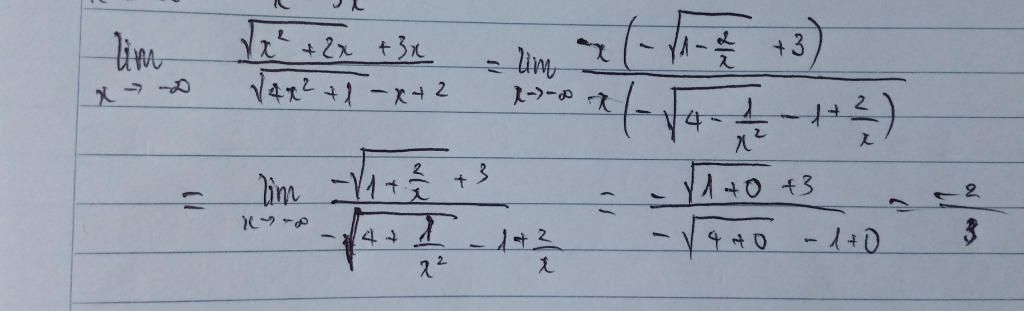 lim x→-∞ (√(x² + 2x) + 3x) / (√(4x² + 1) - x + 2) = lim x→-∞ -x(-√(1 - 2/x) + 3) / -x(-√(4 - 1/x²) - 1 + 2/x)
= lim x→-∞ (-√(1 + 2/x) + 3) / (-√(4 + 1/x²) - 1 + 2/x) = (-√(1+0) + 3) / (-√(4+0) - 1+0) = -2/3